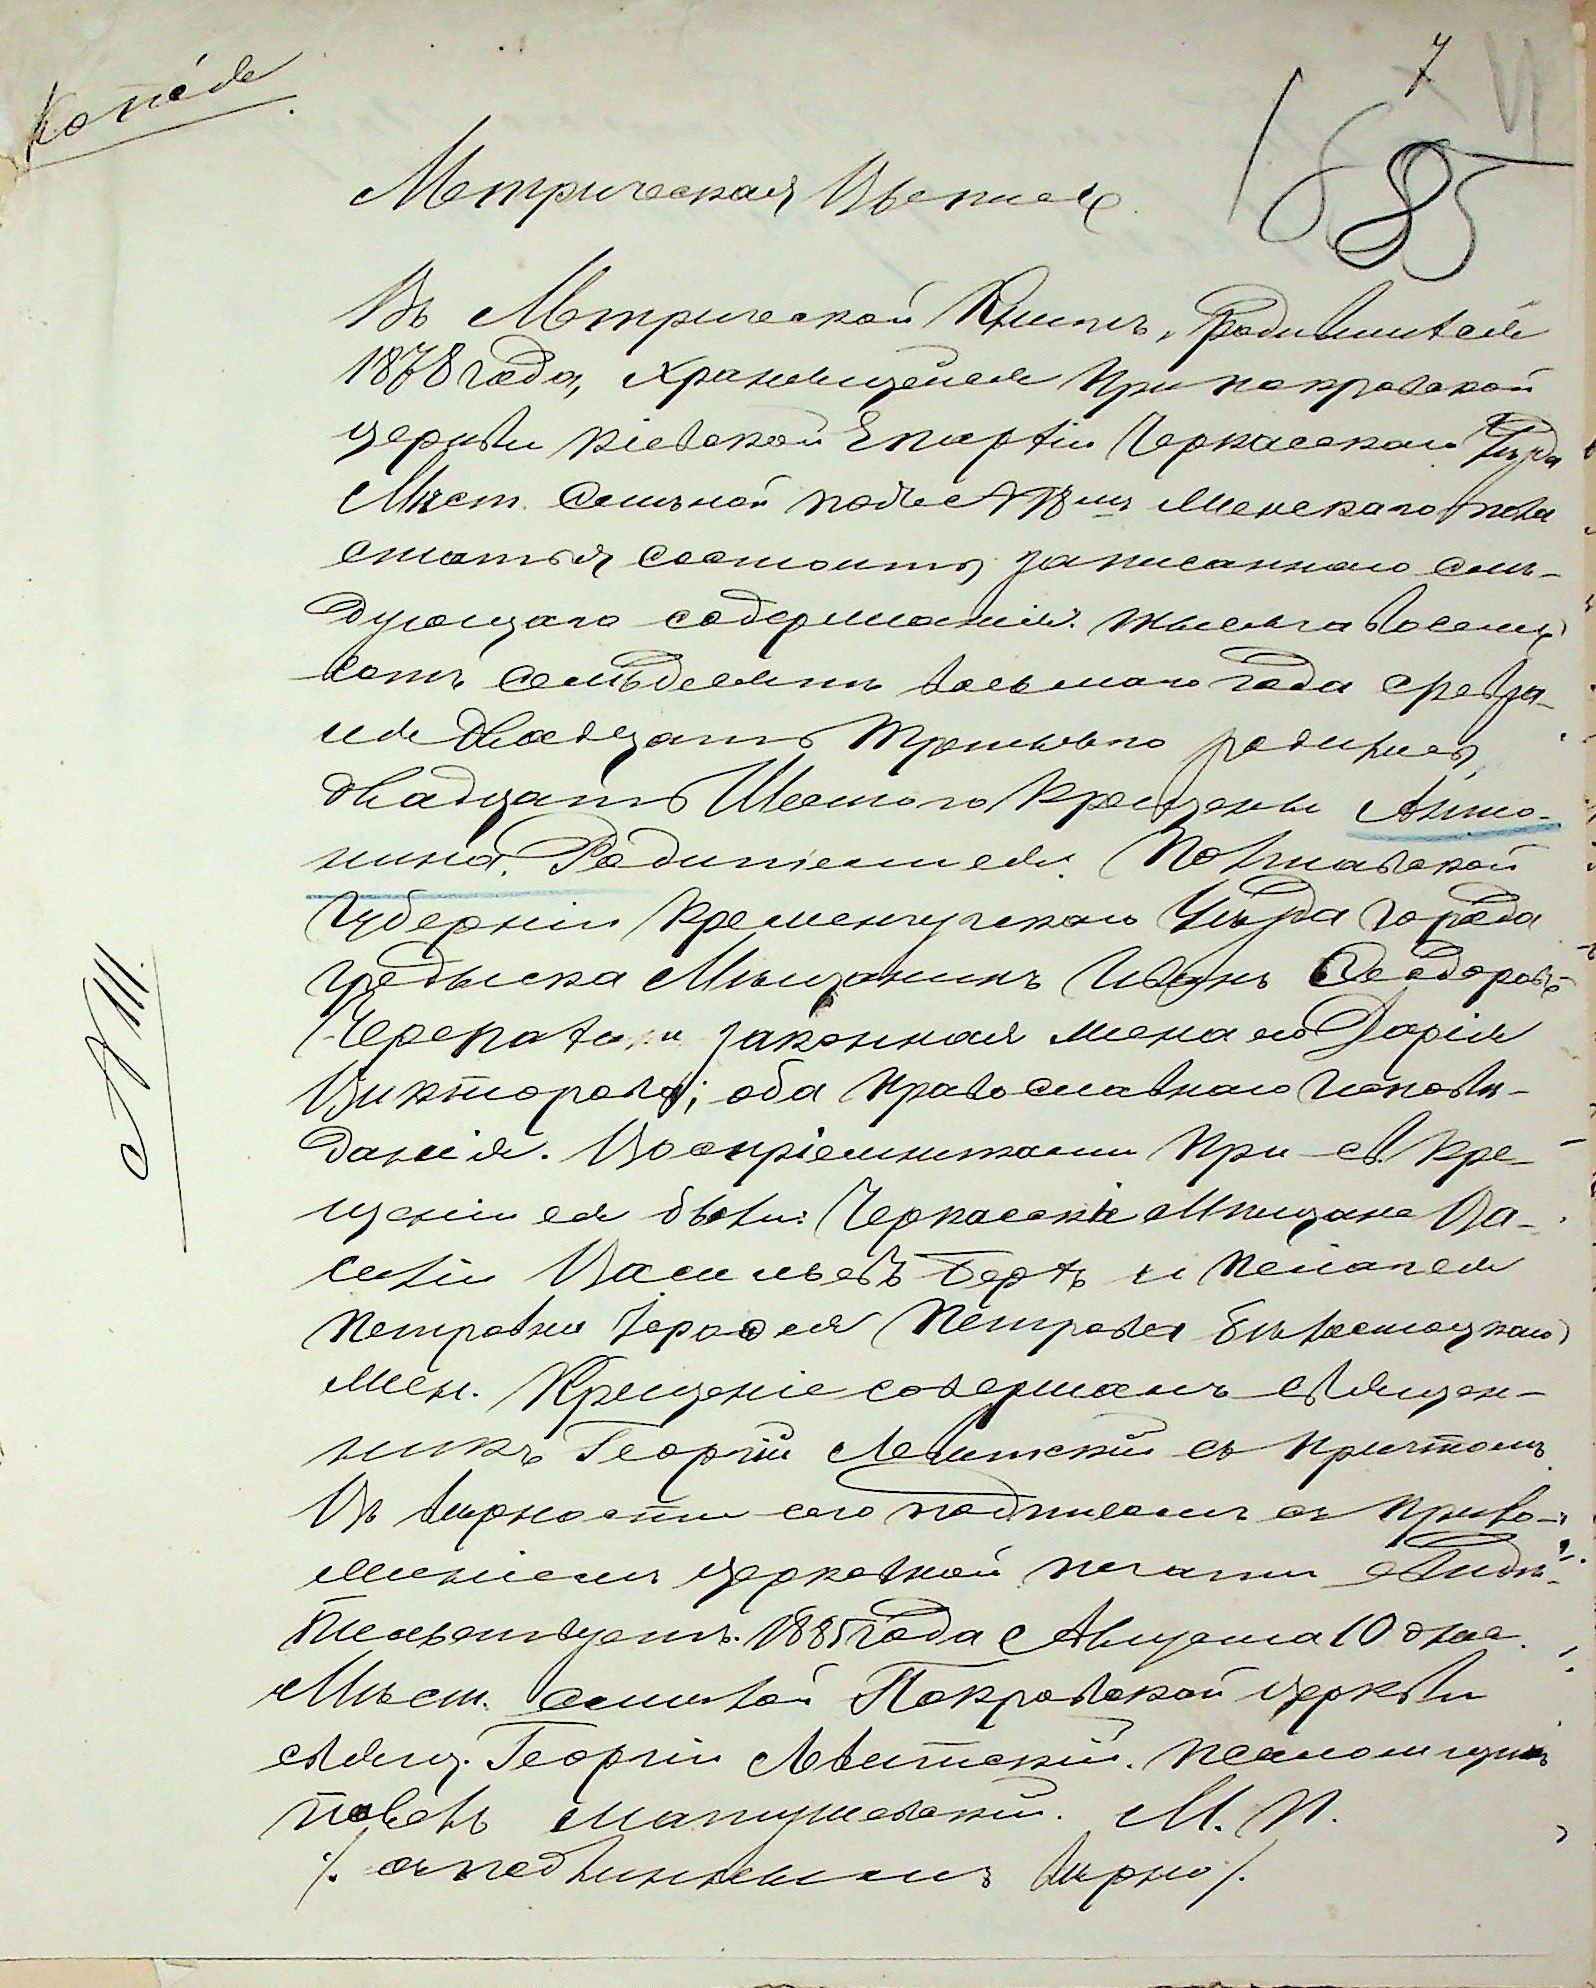 Копія
7
1685
Метрическая Выпись.
Въ Метрической Книгѣ, родившихся
1878 года, хранящейся при покровской
церкви кіевской Епархіи Черкасскаго Уѣзда
Мѣст. Смѣлой подъ № женскаго пола
статья состоитъ записанною слѣ-
дующаго содержанія: тысяча восемь
сотъ семьдесятъ восьмаго года Февра-
ля двадцать третьяго родилась,
двадцать Шестого крещена Анто-
нина. Родители ея: Полтавской
Губерніи Кременчугскаго Уѣзда города
Градыска Мѣщанинъ Иванъ Ѳеодоровъ
и законная жена его Дарія
Викторова; оба православнаго исповѣ-
данія. Воспріемниками при св. кре-
щеніи ея были: Черкасскій Мѣщанинъ Ва-
силій Васильевъ и
Петрова
жен. Крещеніе совершалъ священ-
никъ Георгій Левитскій съ причтомъ.
Въ вѣрности сего подписомъ съ прило-
женіемъ церковной печати свидѣ-
тельствуемъ. 1885 года Августа 10 дня.
Мѣст. Смѣлой Покровской церкви
свящ. Георгій Левитскій. Псаломщикъ
М. П.
/. съ подлиннымъ вѣрно /.
№ III.